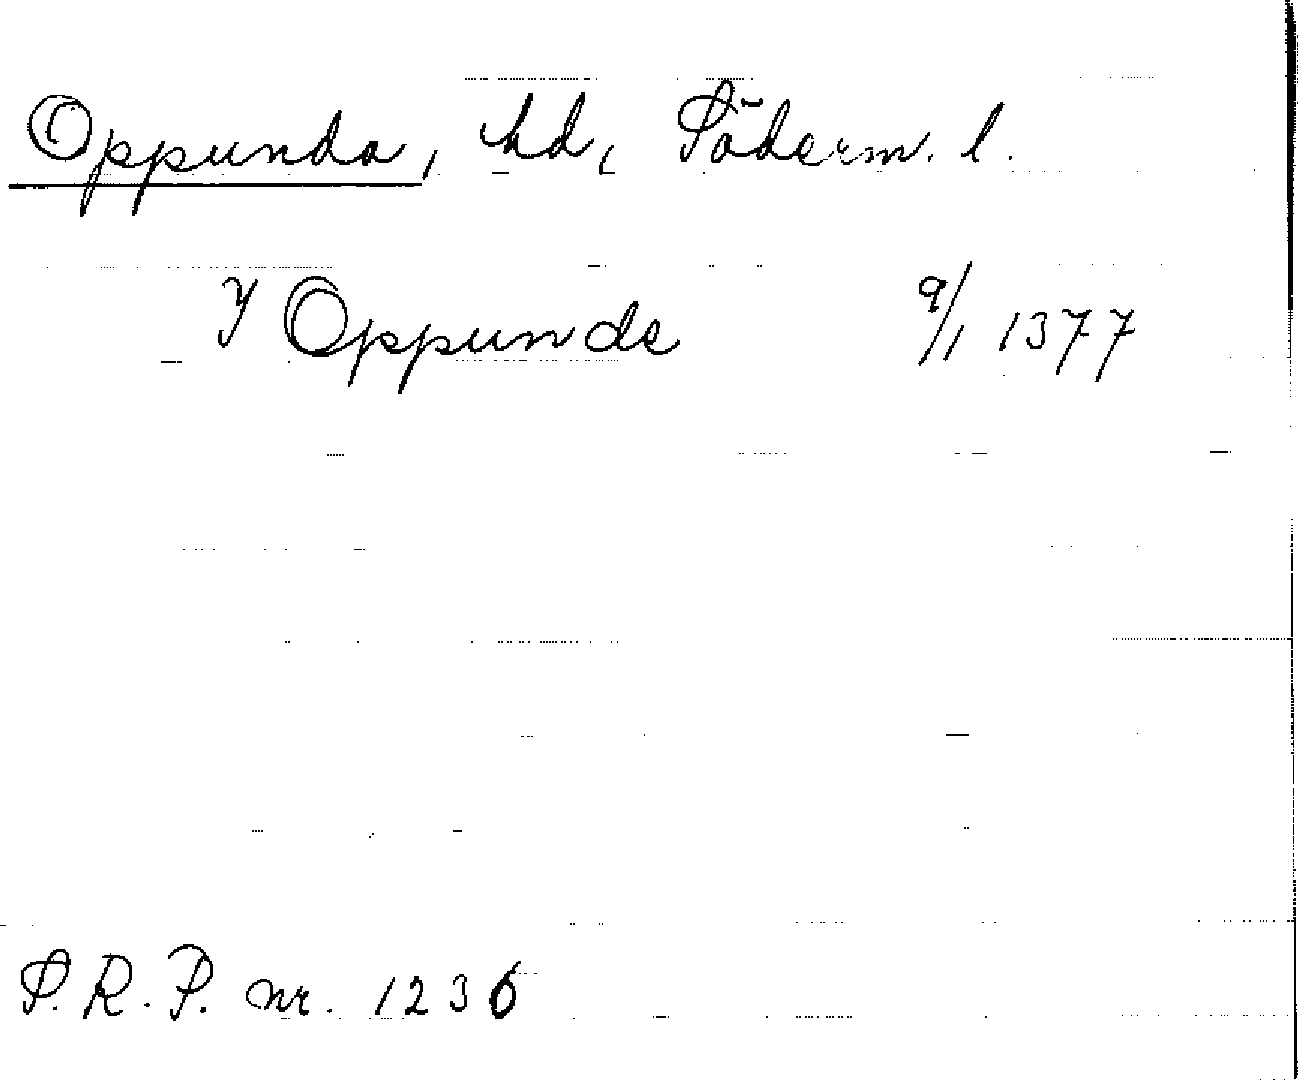 Oppunda, hd, Söderm. l.
y Oppunde 9/1 1377
S.R.P. nr. 1236